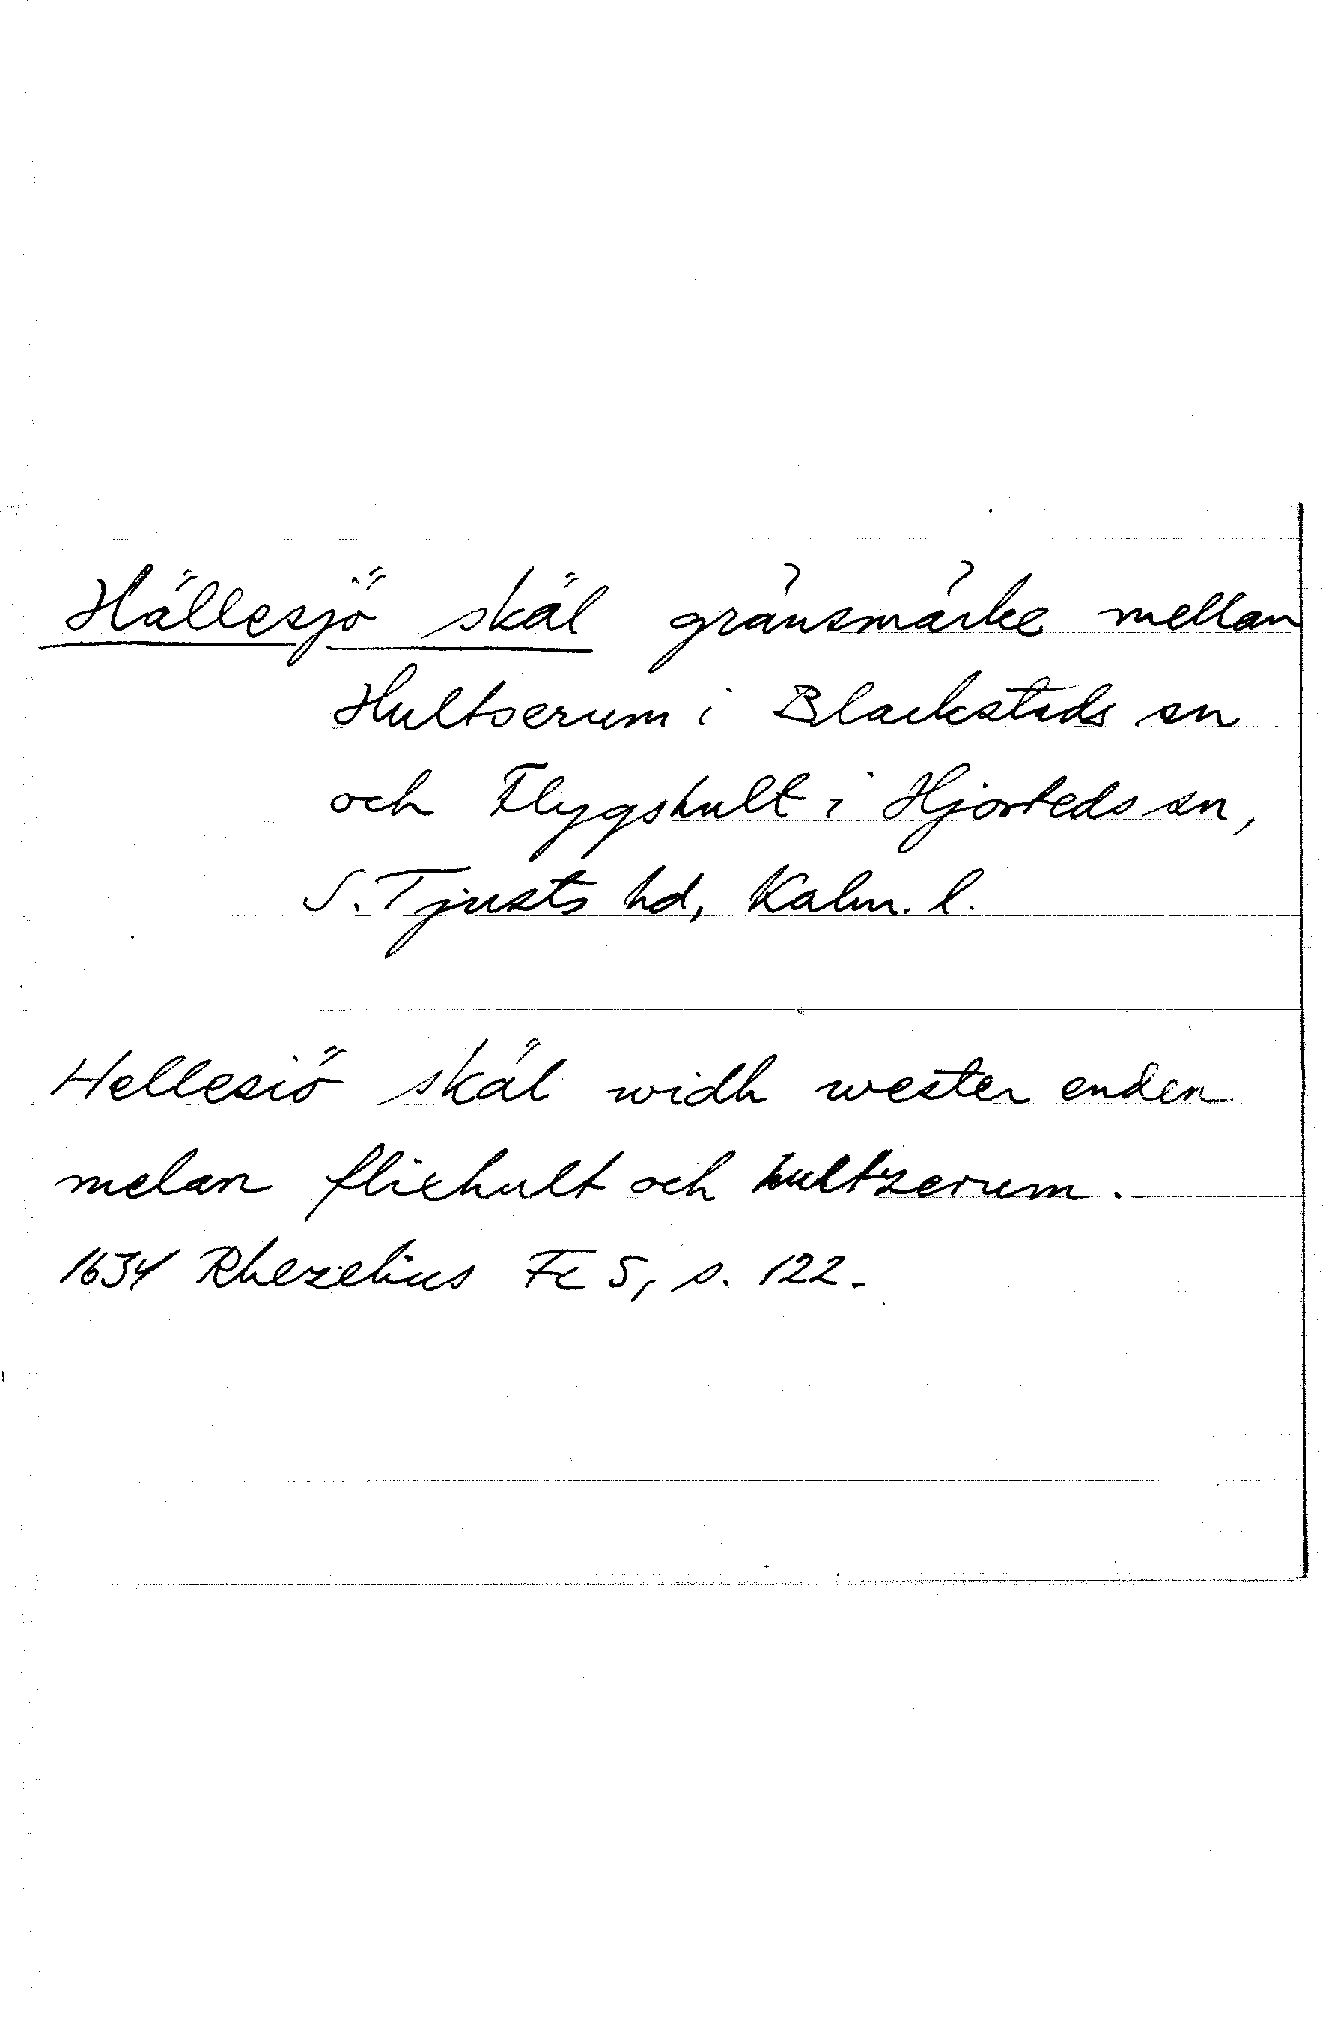 Hällesjö skäl gränsmärke mellan
Hultserum i Blackstads sn
och Flygshult i Hjorteds sn,
S. Tjusts hd, Kalm. l.
Hellesiö skäl widh wester enden
melan fliehult och hultzerum.
1634 Rhezelius Fc 5, s. 122.